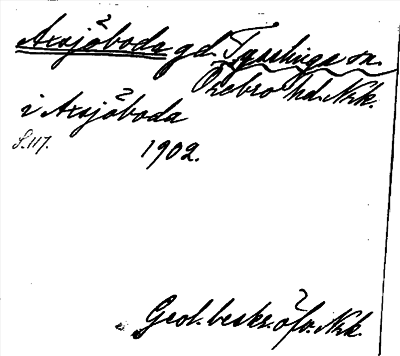 Axsjöboda gd. Tysslinge sn.
Örebro hd. Nrk.
i Axsjöboda
S. 117.
1902.
Geol. beskr. öfv. Nrk.